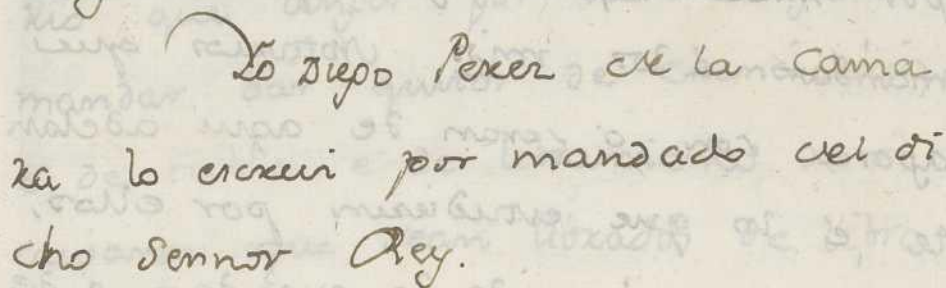 Yo Diego Perez de la Cama
ra lo escreui por mandado del di
cho Sennor Rey.